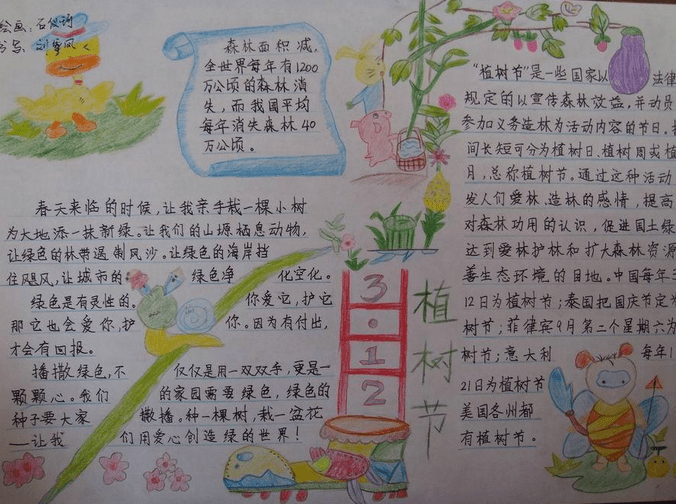 绘画:石俊琦
刘雪凤
森林面积减,
全世界每年有1200
万公顷的森林消
失,而我国平均
每年消失森林40
万公顷。
春天来临的时候,让我亲手栽一棵小树
为大地添一抹新绿。让我们的山塬栖息动物,
让绿色的林带遏制风沙。让绿色的海岸挡
住飓风,让城市的绿色净化空化。
绿色是有灵性的。你爱它,护它
那它也会爱你,护你。因为有付出,
才会有回报。
播撒绿色,不仅仅是用一双双手,更是一
颗颗心。我们的家园需要绿色,绿色的
种子要大家撒播。种一棵树,栽一盆花
——让我们用爱心创造绿的世界!
3·12
植树节
“植树节”是一些国家以法律
规定的以宣传森林效益,并动员
参加义务造林为活动内容的节日。
间长短可分为植树日、植树周或植
月,总称植树节。通过这种活动
发人们爱林、造林的感情,提高
对森林功用的认识,促进国土绿
达到爱林护林和扩大森林资源
善生态环境的目地。中国每年3
12日为植树节;泰国把国庆节定为
树节;菲律宾9月第二个星期六为
树节;意大利每年1
21日为植树节
美国各州都
有植树节。